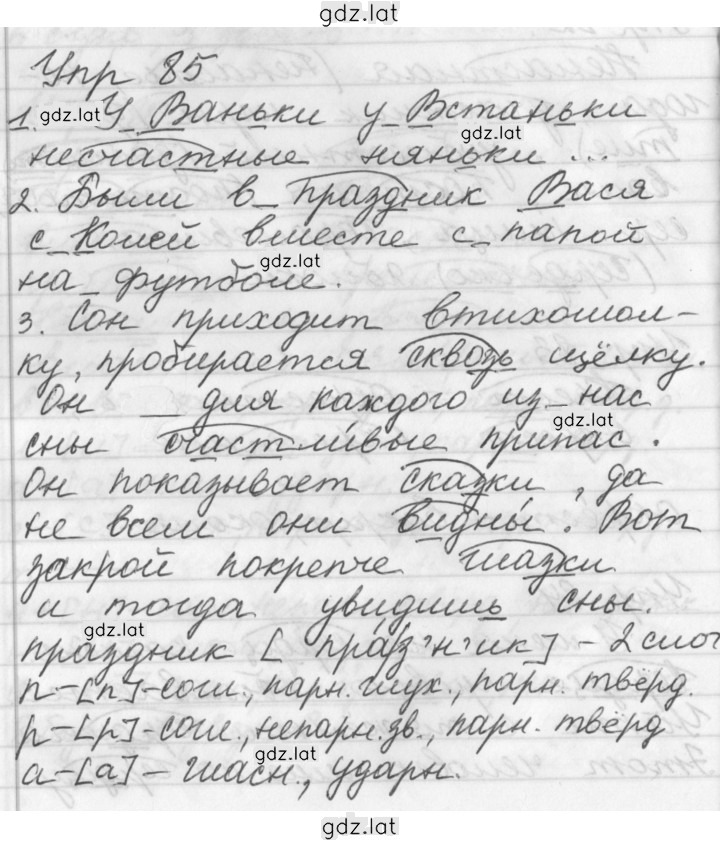 gdz.lat
Упр 85
1. gdz.lat У Ваньки у Встаньки
gdz.lat
несчастные няньки ...
2. Были в праздник Вася
с Колей вместе с папой
gdz.lat
на футболе.
3. Сон приходит втихомол-
ку, пробирается сквозь щёлку.
Он _ для каждого из нас
gdz.lat
сны счастливые припас.
Он показывает сказки, да
не всем они видны́. Вот
закрой покрепче глазки
и тогда увидишь сны.
gdz.lat
праздник [пра́з'н'ик] - 2 слог
п-[п]-согл., парн. глух., парн. твёрд.
р-[р]-согл., непарн. зв., парн. твёрд
gdz.lat
а-[а]-гласн., ударн.
gdz.lat